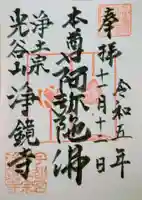 奉拝
令和五年
十一月十二日
本尊阿弥陀佛
浄土宗
光谷山浄鏡寺